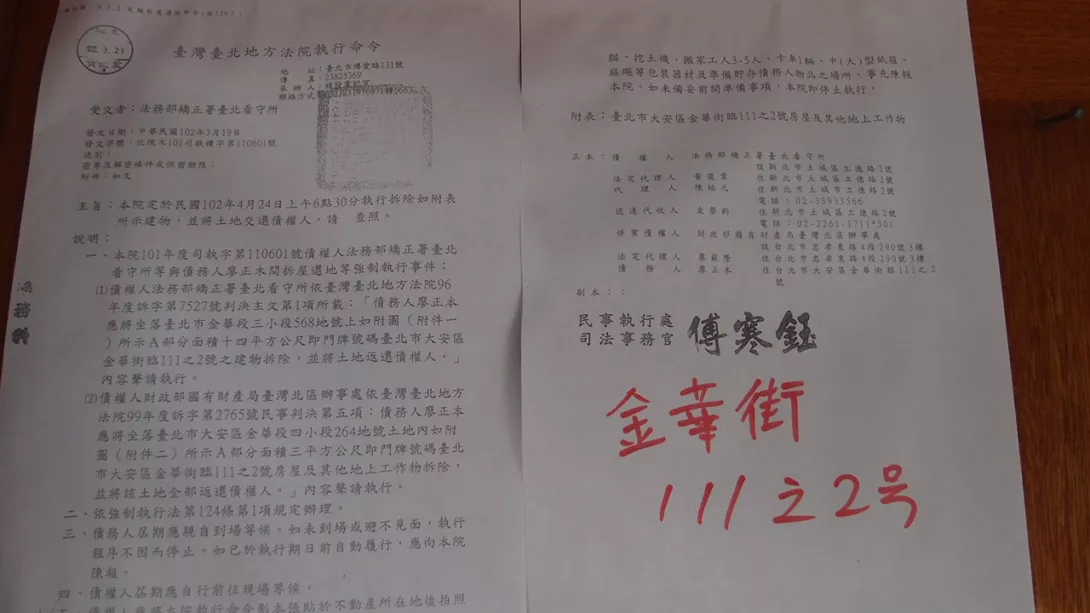 臺灣臺北地方法院執行命令
地　　址：臺北市博愛路131號
傳　　真：23825369
受文者：法務部矯正署臺北看守所
發文日期：中華民國102年3月19日
發文字號：北院木101司執精字第110601號
速別：
密等及解密條件或保密期限：
附件：如文
主旨：本院定於民國102年4月24日上午6點30分執行拆除如附表
所示建物，並將土地交還債權人。請　查照。
說明：
一、本院101年度司執字第110601號債權人法務部矯正署臺北
看守所等與債務人廖正本間拆屋還地等強制執行事件：
⑴債權人法務部矯正署臺北看守所依臺灣臺北地方法院96
年度訴字第7527號判決主文第1項所載：「債務人廖正本
應將坐落臺北市金華段三小段568地號上如附圖（附件一
）所示A部分面積十四平方公尺即門牌號碼臺北市大安區
金華街臨111之2號之建物拆除，並將土地返還債權人。」
內容聲請執行。
⑵債權人財政部國有財產局臺灣北區辦事處依臺灣臺北地方
法院99年度訴字第2765號民事判決第五項：債務人廖正本
應將坐落臺北市大安區金華段四小段264地號土地內如附
圖（附件二）所示A部分面積三平方公尺即門牌號碼臺北
市大安區金華街臨111之2號房屋及其他地上工作物拆除，
並將該土地全部返還債權人。」內容聲請執行。
二、依強制執行法第124條第1項規定辦理。
三、債務人屆期應親自到場等候。如未到場或避不見面，執行
程序不因而停止。如已於執行期日前自動履行，應向本院
陳報。
四、債權人屆期應自行前往現場等候。
貓、挖土機、搬家工人3-5人、卡車1輛、中(大)型紙箱、
麻繩等包裝器材及準備貯存債務人物品之場所，事先陳報
本院。如未備妥前開準備事項，本院即停止執行。
附表：臺北市大安區金華街臨111之2號房屋及其他地上工作物
正本：債　權　人　法務部矯正署臺北看守所
設新北市土城區立德路2號
法定代理人　黃俊棠　住新北市土城區立德路2號
代　理　人　陳裕元　住新北市土城市立德路2號
電話：02-33933566
送達代收人　住新北市土城區立德路2號
電話：02-2261-1711*301
併案債權人　財政部國有財產局臺灣北區辦事處
設台北市忠孝東路4段290號3樓
法定代理人　廖蘇隆　住台北市忠孝東路4段290號3樓
債　務　人　廖正本　住台北市大安區金華街臨111之2
號
副本：：
民事執行處
司法事務官　傅寒鈺
金華街
111之2号